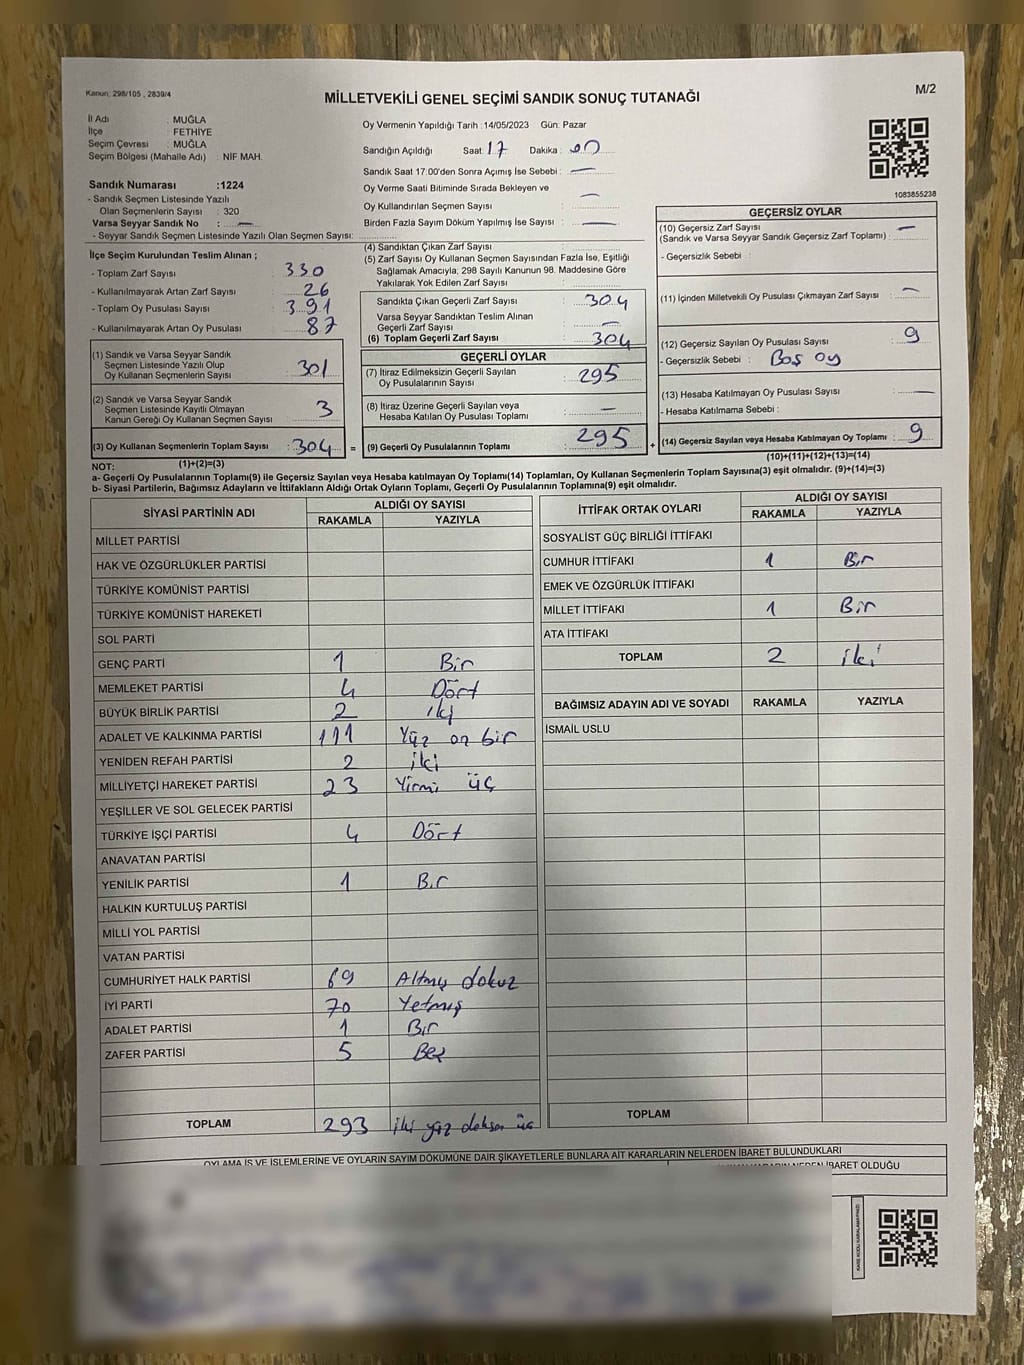 Kanun: 298/105 , 2839/4
MİLLETVEKİLİ GENEL SEÇİMİ SANDIK SONUÇ TUTANAĞI
M/2
İl Adı : MUĞLA
İlçe : FETHİYE
Seçim Çevresi : MUĞLA
Seçim Bölgesi (Mahalle Adı) : NİF MAH.
Sandık Numarası :1224
- Sandık Seçmen Listesinde Yazılı
Olan Seçmenlerin Sayısı : 320
Varsa Seyyar Sandık No : —
- Seyyar Sandık Seçmen Listesinde Yazılı Olan Seçmen Sayısı:
Oy Vermenin Yapıldığı Tarih :14/05/2023 Gün: Pazar
Sandığın Açıldığı Saat: 17 Dakika : on
Sandık Saat 17.00'den Sonra Açımış İse Sebebi : —
Oy Verme Saati Bitiminde Sırada Bekleyen ve —
Oy Kullandırılan Seçmen Sayısı :
Birden Fazla Sayım Döküm Yapılmış İse Sayısı : —
1083855238
İlçe Seçim Kurulundan Teslim Alınan ;
- Toplam Zarf Sayısı : 330
- Kullanılmayarak Artan Zarf Sayısı : 26
- Toplam Oy Pusulası Sayısı : 391
- Kullanılmayarak Artan Oy Pusulası : 87
(1) Sandık ve Varsa Seyyar Sandık
Seçmen Listesinde Yazılı Olup
Oy Kullanan Seçmenlerin Sayısı : 301
(2) Sandık ve Varsa Seyyar Sandık
Seçmen Listesinde Kayıtlı Olmayan
Kanun Gereği Oy Kullanan Seçmen Sayısı : 3
(3) Oy Kullanan Seçmenlerin Toplam Sayısı : 304 =
(1)+(2)=(3)
(4) Sandıktan Çıkan Zarf Sayısı :
(5) Zarf Sayısı Oy Kullanan Seçmen Sayısından Fazla İse, Eşitliği
Sağlamak Amacıyla; 298 Sayılı Kanunun 98. Maddesine Göre
Yakılarak Yok Edilen Zarf Sayısı :
Sandıkta Çıkan Geçerli Zarf Sayısı : 304
Varsa Seyyar Sandıktan Teslim Alınan
Geçerli Zarf Sayısı : —
(6) Toplam Geçerli Zarf Sayısı : 304
GEÇERLİ OYLAR
(7) İtiraz Edilmeksizin Geçerli Sayılan
Oy Pusulalarının Sayısı : 295
(8) İtiraz Üzerine Geçerli Sayılan veya
Hesaba Katılan Oy Pusulası Toplamı : —
(9) Geçerli Oy Pusulalarının Toplamı : 295 +
GEÇERSİZ OYLAR
(10) Geçersiz Zarf Sayısı —
(Sandık ve Varsa Seyyar Sandık Geçersiz Zarf Toplamı) :
- Geçersizlik Sebebi :
(11) İçinden Milletvekili Oy Pusulası Çıkmayan Zarf Sayısı : —
(12) Geçersiz Sayılan Oy Pusulası Sayısı : 9
- Geçersizlik Sebebi : Boş oy
(13) Hesaba Katılmayan Oy Pusulası Sayısı : —
- Hesaba Katılmama Sebebi :
(14) Geçersiz Sayılan veya Hesaba Katılmayan Oy Toplamı : 9
(10)+(11)+(12)+(13)=(14)
NOT:
a- Geçerli Oy Pusulalarının Toplamı(9) ile Geçersiz Sayılan veya Hesaba katılmayan Oy Toplamı(14) Toplamları, Oy Kullanan Seçmenlerin Toplam Sayısına(3) eşit olmalıdır. (9)+(14)=(3)
b- Siyasi Partilerin, Bağımsız Adayların ve İttifakların Aldığı Ortak Oyların Toplamı, Geçerli Oy Pusulalarının Toplamına(9) eşit olmalıdır.
SİYASİ PARTİNİN ADI ALDIĞI OY SAYISI
RAKAMLA YAZIYLA
MİLLET PARTİSİ
HAK VE ÖZGÜRLÜKLER PARTİSİ
TÜRKİYE KOMÜNİST PARTİSİ
TÜRKİYE KOMÜNİST HAREKETİ
SOL PARTİ
GENÇ PARTİ 1 Bir
MEMLEKET PARTİSİ 4 Dört
BÜYÜK BİRLİK PARTİSİ 2 iki
ADALET VE KALKINMA PARTİSİ 111 Yüz on bir
YENİDEN REFAH PARTİSİ 2 iki
MİLLİYETÇİ HAREKET PARTİSİ 23 Yirmi üç
YEŞİLLER VE SOL GELECEK PARTİSİ
TÜRKİYE İŞÇİ PARTİSİ 4 Dört
ANAVATAN PARTİSİ
YENİLİK PARTİSİ 1 Bir
HALKIN KURTULUŞ PARTİSİ
MİLLİ YOL PARTİSİ
VATAN PARTİSİ
CUMHURİYET HALK PARTİSİ 69 Altmış dokuz
İYİ PARTİ 70 Yetmiş
ADALET PARTİSİ 1 Bir
ZAFER PARTİSİ 5 Beş
TOPLAM 293 iki yüz doksan üç
İTTİFAK ORTAK OYLARI ALDIĞI OY SAYISI
RAKAMLA YAZIYLA
SOSYALİST GÜÇ BİRLİĞİ İTTİFAKI
CUMHUR İTTİFAKI 1 Bir
EMEK VE ÖZGÜRLÜK İTTİFAKI
MİLLET İTTİFAKI 1 Bir
ATA İTTİFAKI
TOPLAM 2 iki
BAĞIMSIZ ADAYIN ADI VE SOYADI RAKAMLA YAZIYLA
İSMAİL USLU
TOPLAM
OYLAMA İŞ VE İŞLEMLERİNE VE OYLARIN SAYIM DÖKÜMÜNE DAİR ŞİKAYETLERLE BUNLARA AİT KARARLARIN NELERDEN İBARET BULUNDUKLARI
İBARET OLDUĞU